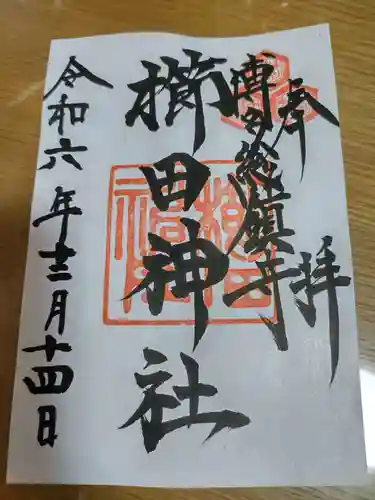 奉拝
博多総鎮守
櫛田神社
令和六年十二月十四日